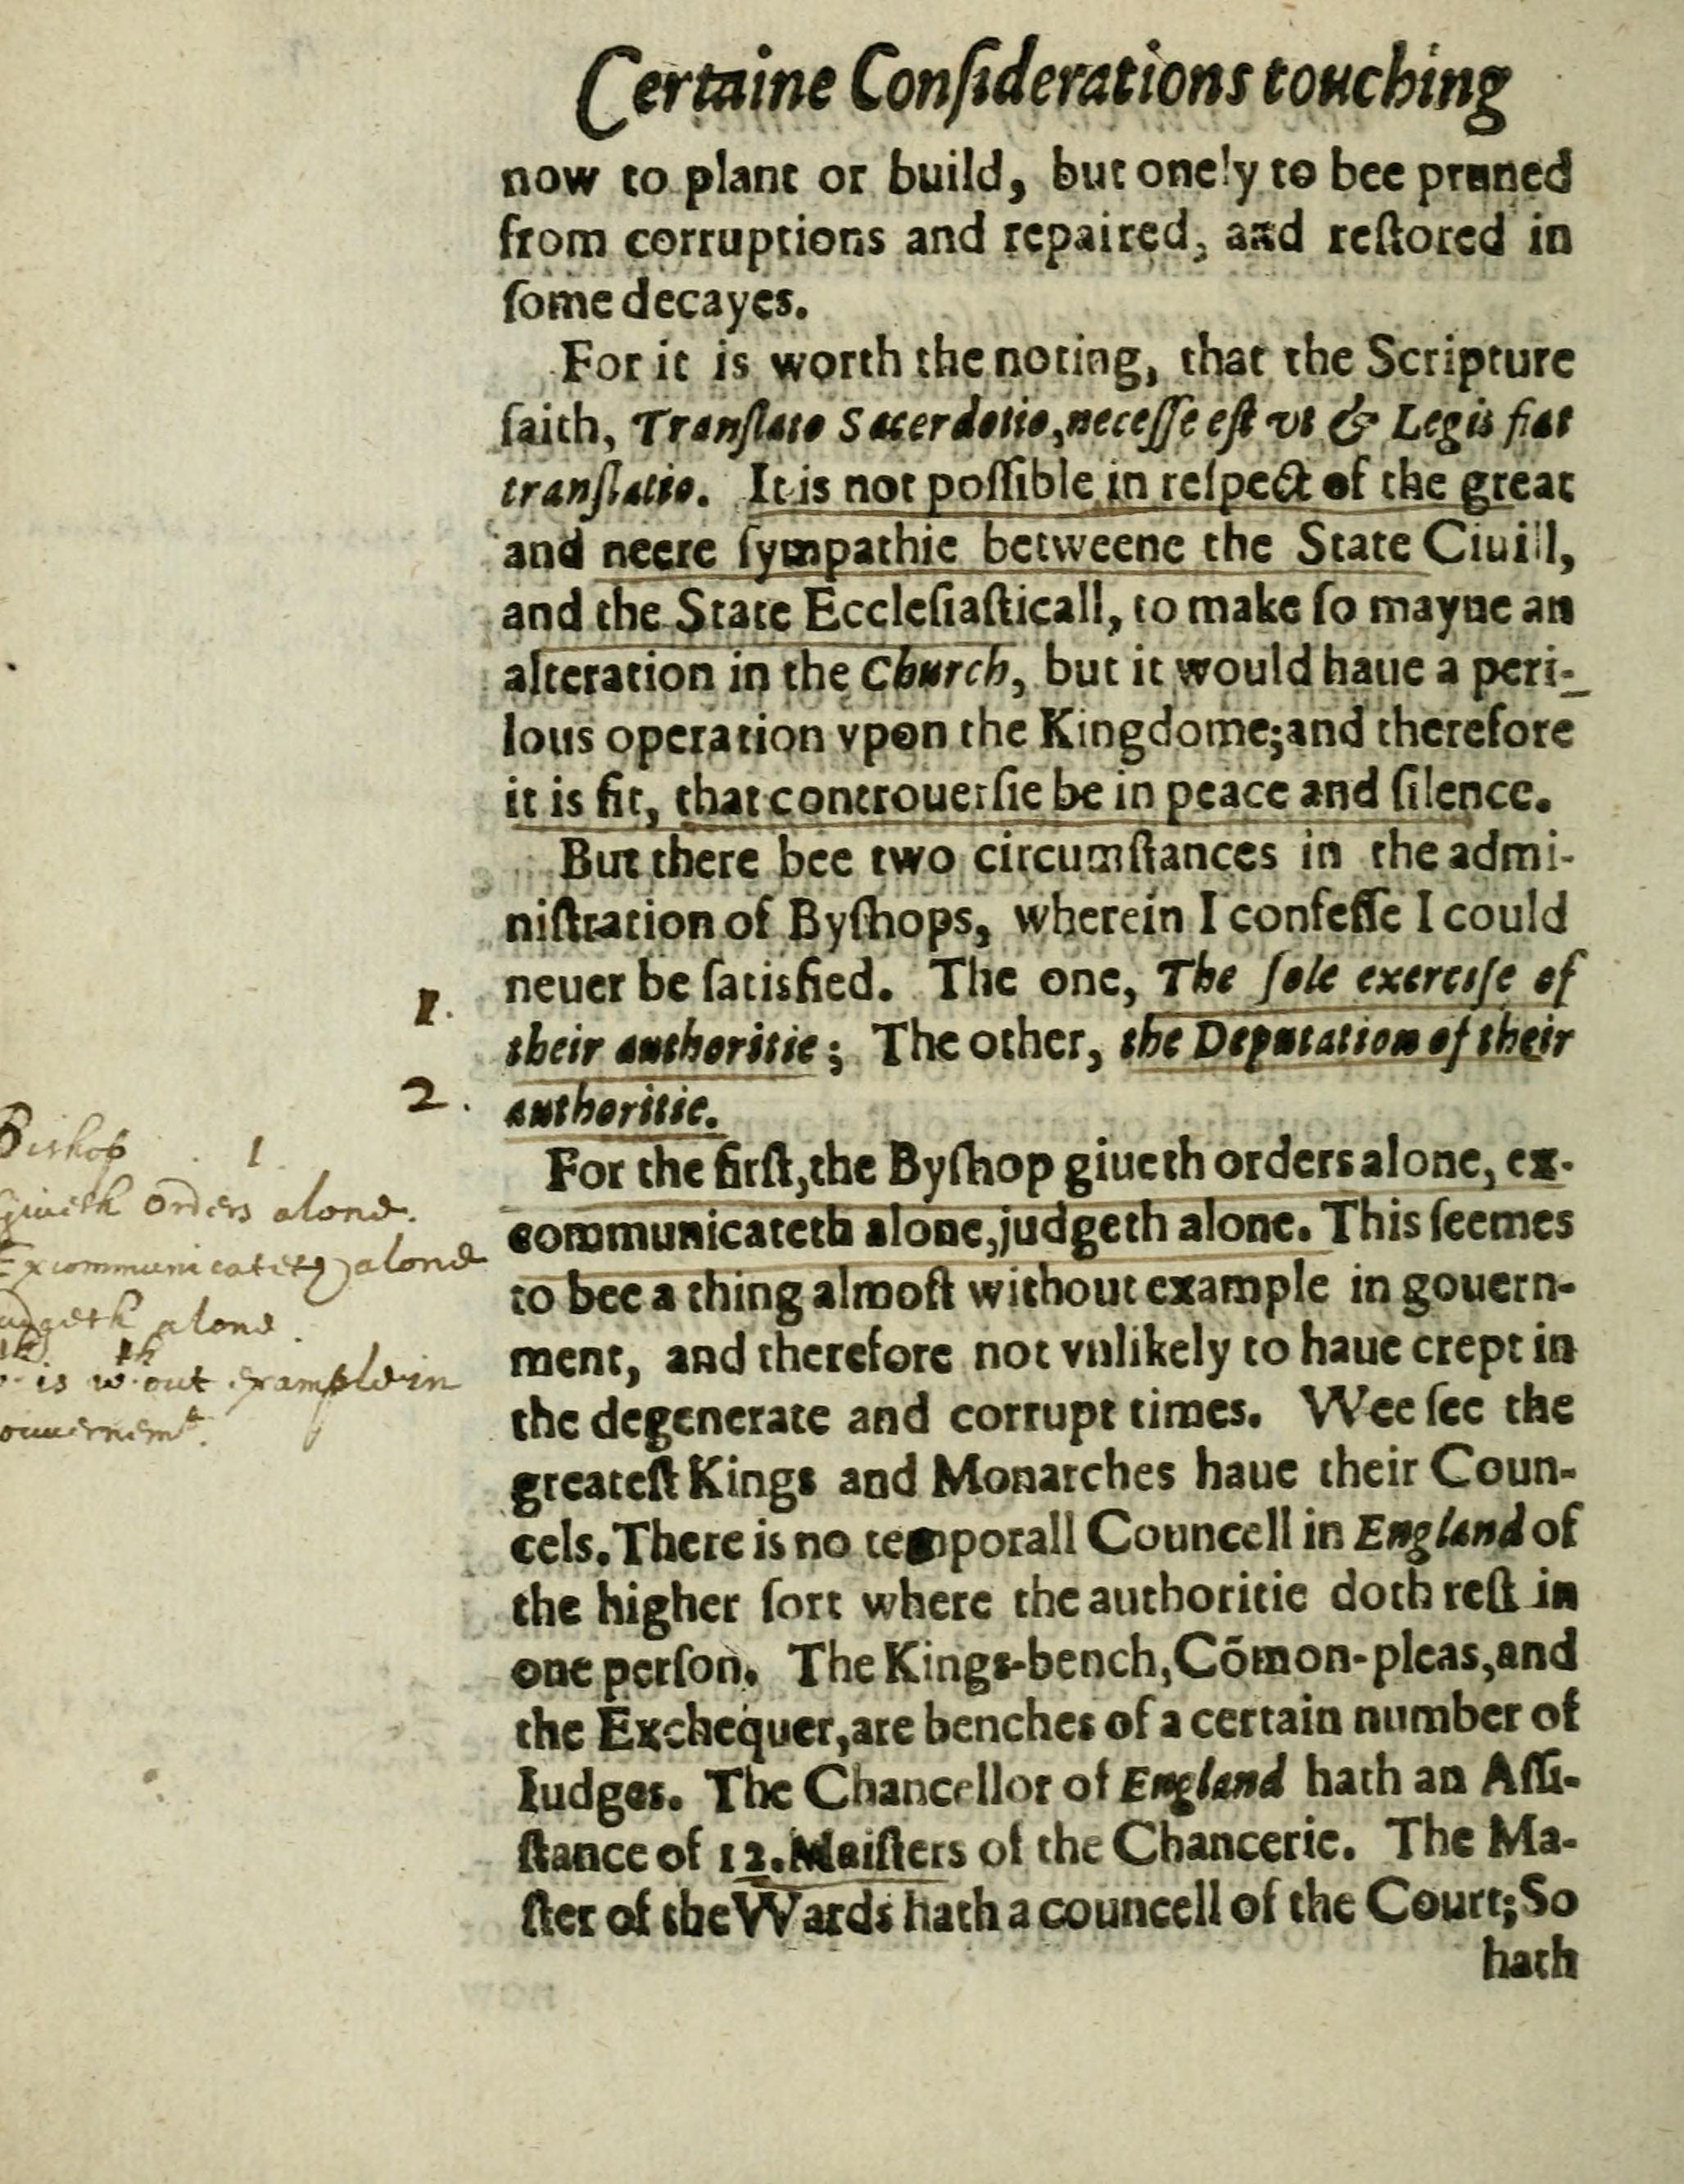 Certaine Conſiderations touching
now to plant or build, but onely to bee pruned
from corruptions and repaired, and reſtored in
ſome decayes.
For it is worth the noting, that the Scripture
ſaith, Tranſlato Sacerdotio, neceſſe eſt vt & Legis fiat
tranſlatio. It is not poſſible in reſpect of the great
and neere ſympathie betweene the State Ciuill,
and the State Eccleſiaſticall, to make ſo mayne an
alteration in the Church, but it would haue a peri-
lous operation vpon the Kingdome; and therefore
it is fit, that controuerſie be in peace and ſilence.
But there bee two circumſtances in the admi-
niſtration of Byſhops, wherein I confeſſe I could
neuer be ſatisfied. The one, The ſole exerciſe of
1.
their authoritie; The other, the Deputation of their
2.
authoritie.
For the firſt, the Byſhop giueth orders alone, ex-
communicateth alone, judgeth alone. This ſeemes
to bee a thing almoſt without example in gouern-
ment, and therefore not vnlikely to haue crept in
the degenerate and corrupt times. Wee ſee the
greateſt Kings and Monarches haue their Coun-
cels. There is no temporall Councell in England of
the higher ſort where the authoritie doth reſt in
one perſon. The Kings-bench, Cõmon-pleas, and
the Exchequer, are benches of a certain number of
Iudges. The Chancellor of England hath an Aſſi-
ſtance of 12. Maiſters of the Chancerie. The Ma-
ſter of the Wards hath a councell of the Court; So
hath
Bishop 1.
Giueth orders alone.
Excommunicateth alone
udgeth alone.
is wth out example in
ouuernemt.